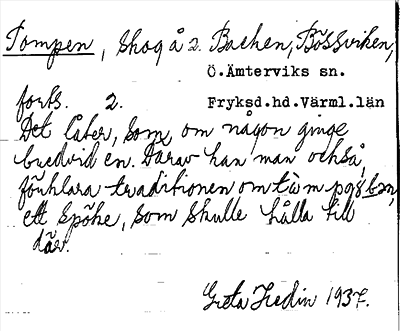 Tompen, skog å 2. Backen, Bössviken,
Ö.Ämterviks sn.
forts. 2. Fryksd.hd.Värml.län
Det låter, som om någon ginge
bredvid en. Därav kan man också
förklara traditionen om
ett spöke, som skulle hålla till
där.
Greta Hedin 1937.